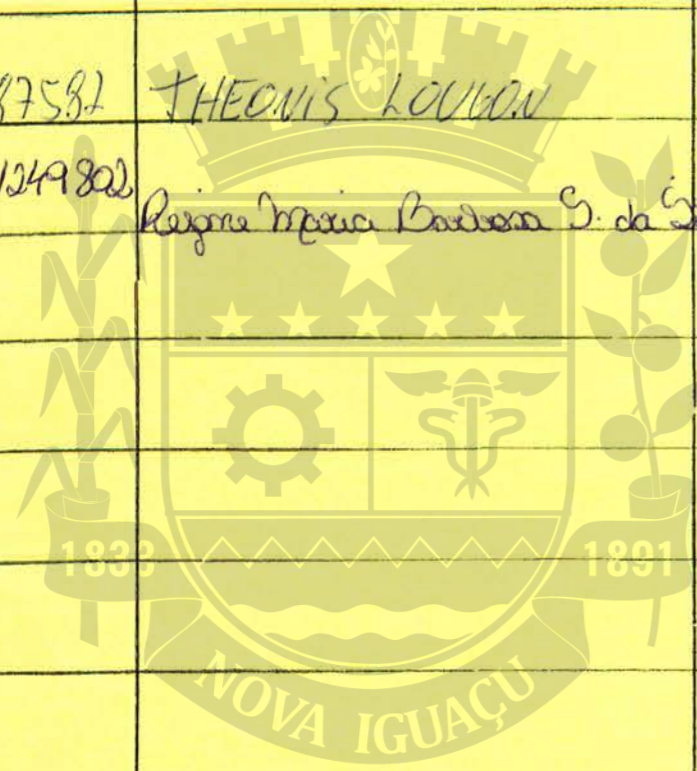 87582 THEONIS LOUBON
1249802
Rejane Maria Barbosa S. da S
1833 1891
NOVA IGUAÇU